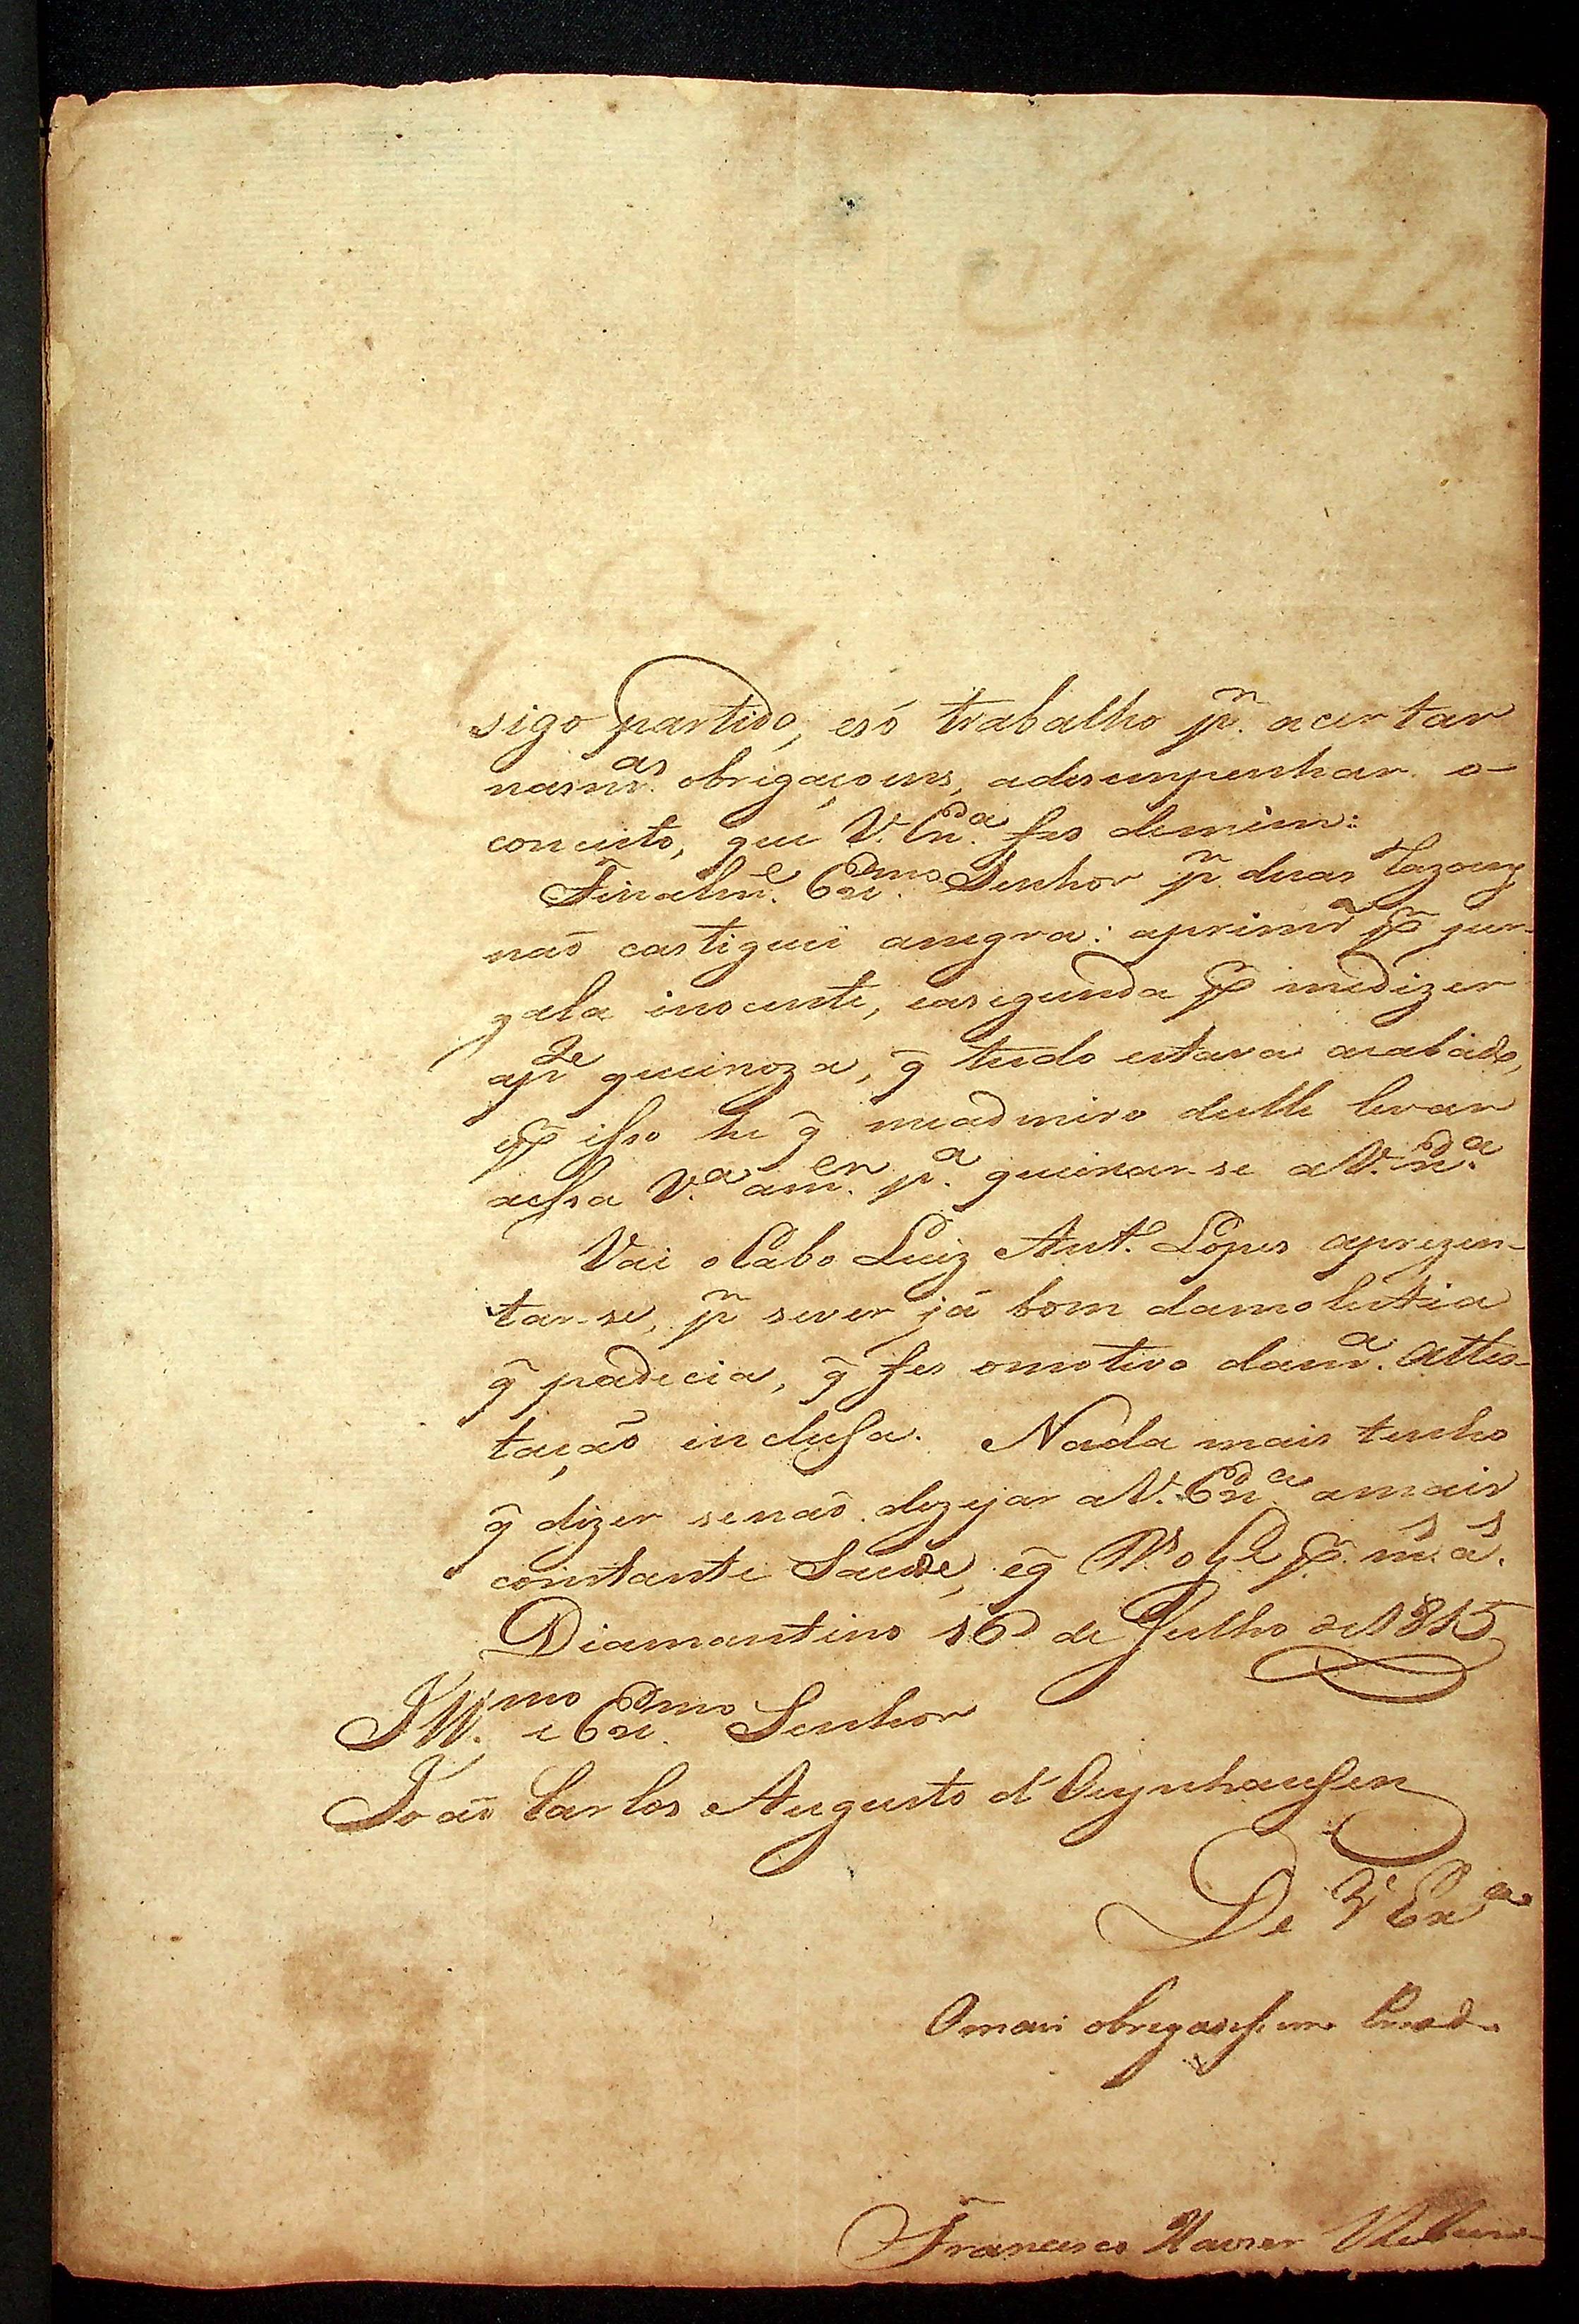 sigo partido, esó trabalho pr. acertar
nasmas. obrigaçoens, adesempenhar o
conceito, que V. Exa. fes demim:
Finalme. Exmo. Senhor pr. duas Razoens
naõ castiguei anegra: aprimra pr jul-
gala inocente, easegunda pr medizer
apte queixoza, q̃ tudo estava acabado,
epr isso he q̃ meadmiro delle levar
aessa Va. amer. pa. queixar-se aV. Exa.
Vai oCabo Luiz Anto. Lopes aprezen-
tar-se, pr sever já bom damolestia
q̃ padecia, q̃ fes omotivo dama. attes-
taçaõ inclusa. Nada mais tenho
q̃ dizer senaõ dezejar aV. Exa. amais
constante Saude, eq̃ Ds. oge. pr. ms. as.
Diamantino 16 de Julho de 1815
Illmo. e Exmo. Senhor
Joaõ Carlos Augusto d'Oeynhausen
De V Exa
Omais obrigadissimo Criado
Francisco Xavier